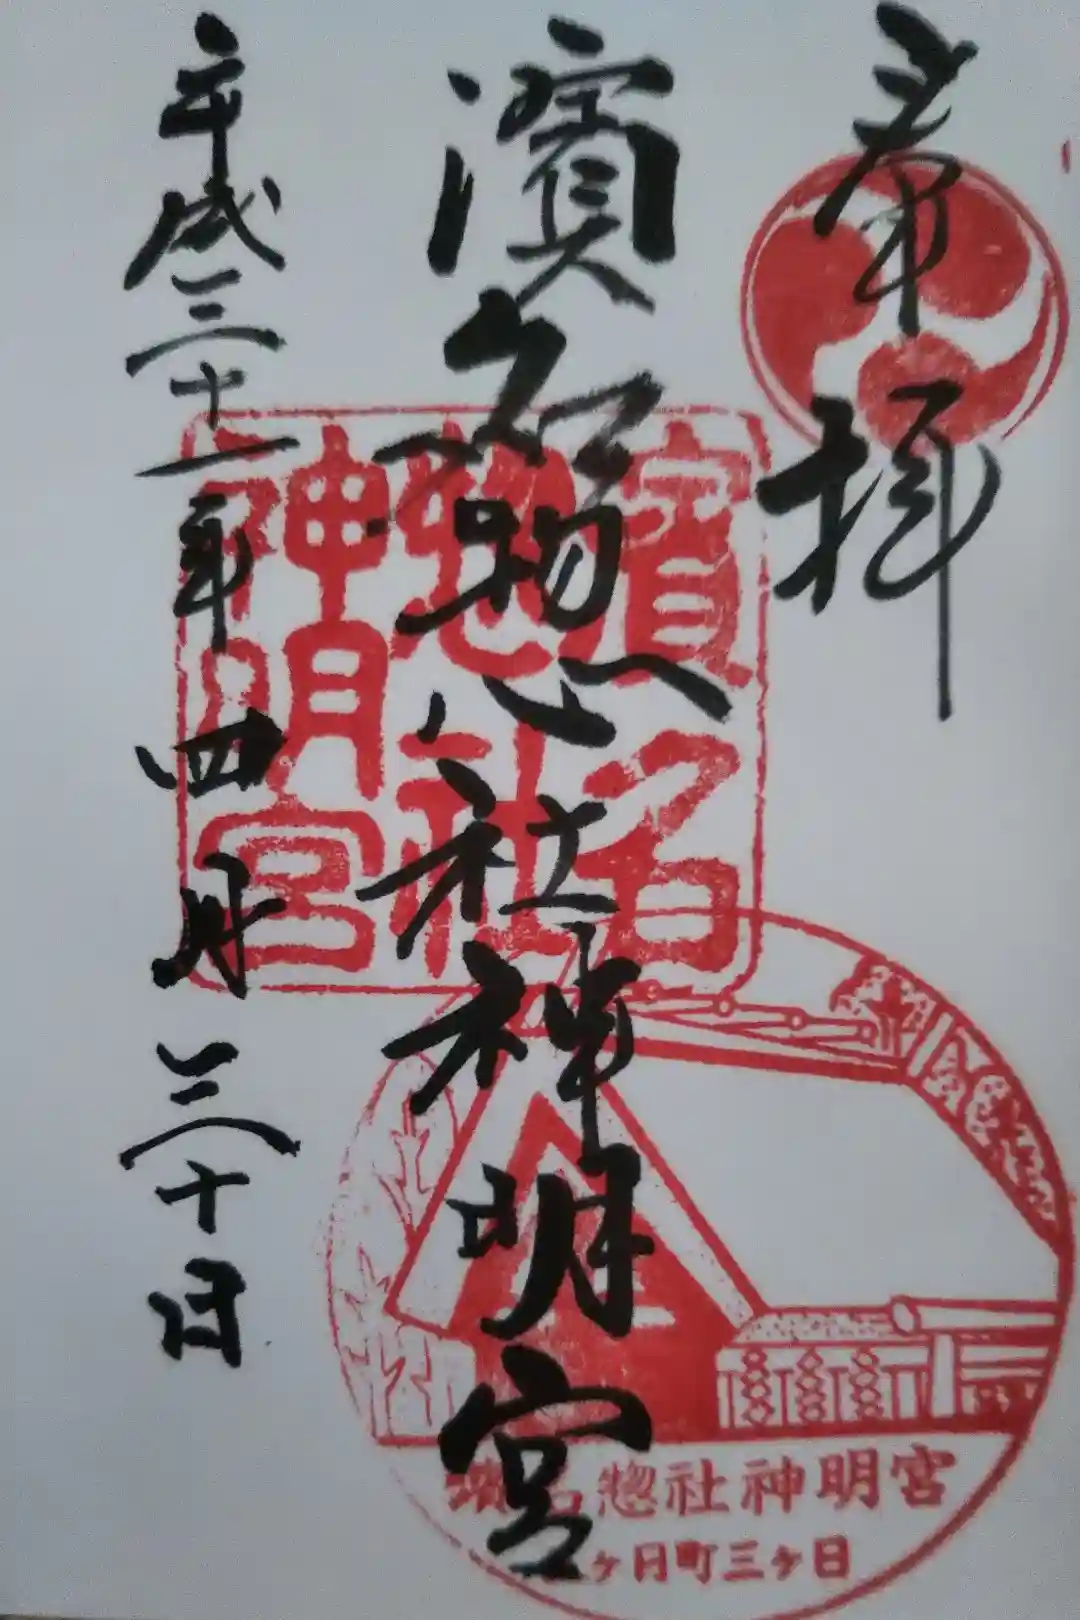 奉拝
濱名惣社神明宮
平成三十一年四月三十日
濱名
惣社
神明宮
名惣社神明宮
ヶ日町三ヶ日